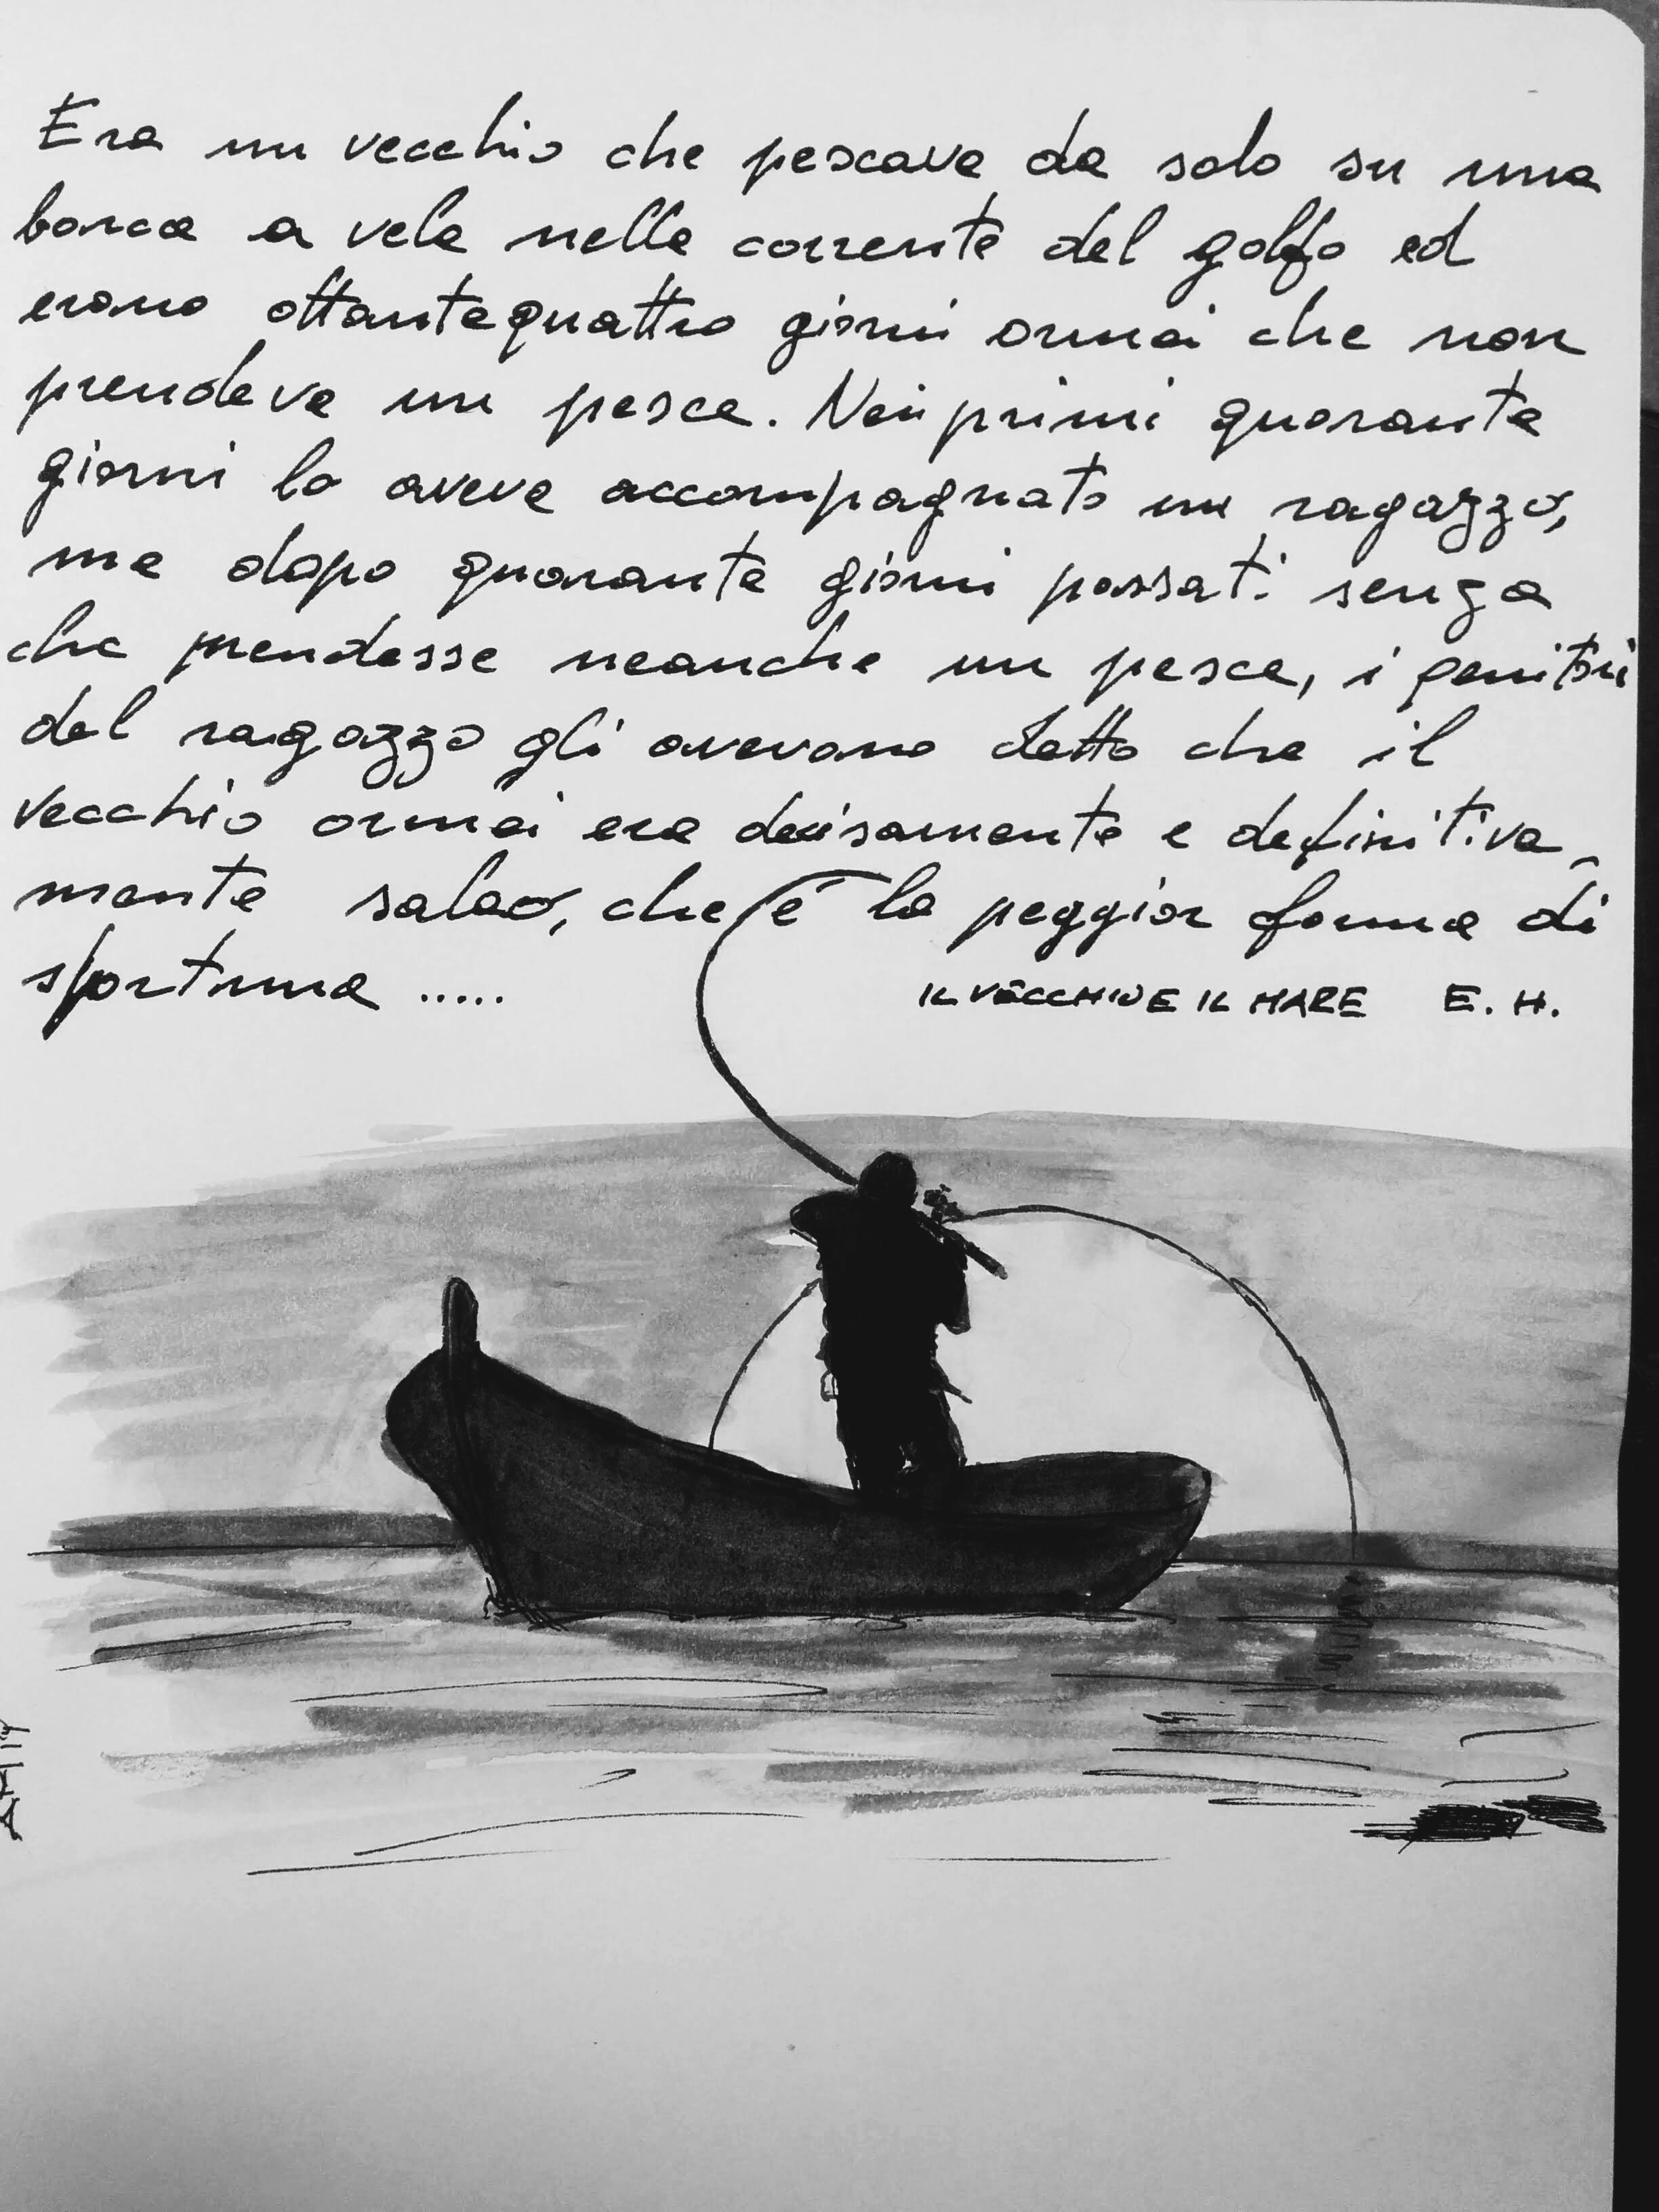 Era un vecchio che pescava da solo su una
barca a vela nella corrente del golfo ed
erano ottantaquattro giorni ormai che non
prendeva un pesce. Nei primi quaranta
giorni lo aveva accompagnato un ragazzo,
ma dopo quaranta giorni passati senza
che prendesse neanche un pesce, i genitori
del ragazzo gli avevano detto che il
vecchio ormai era decisamente e definitiva
mente salao, che é la peggior forma di
sfortuna .....
IL VECCHIO E IL MARE E. H.